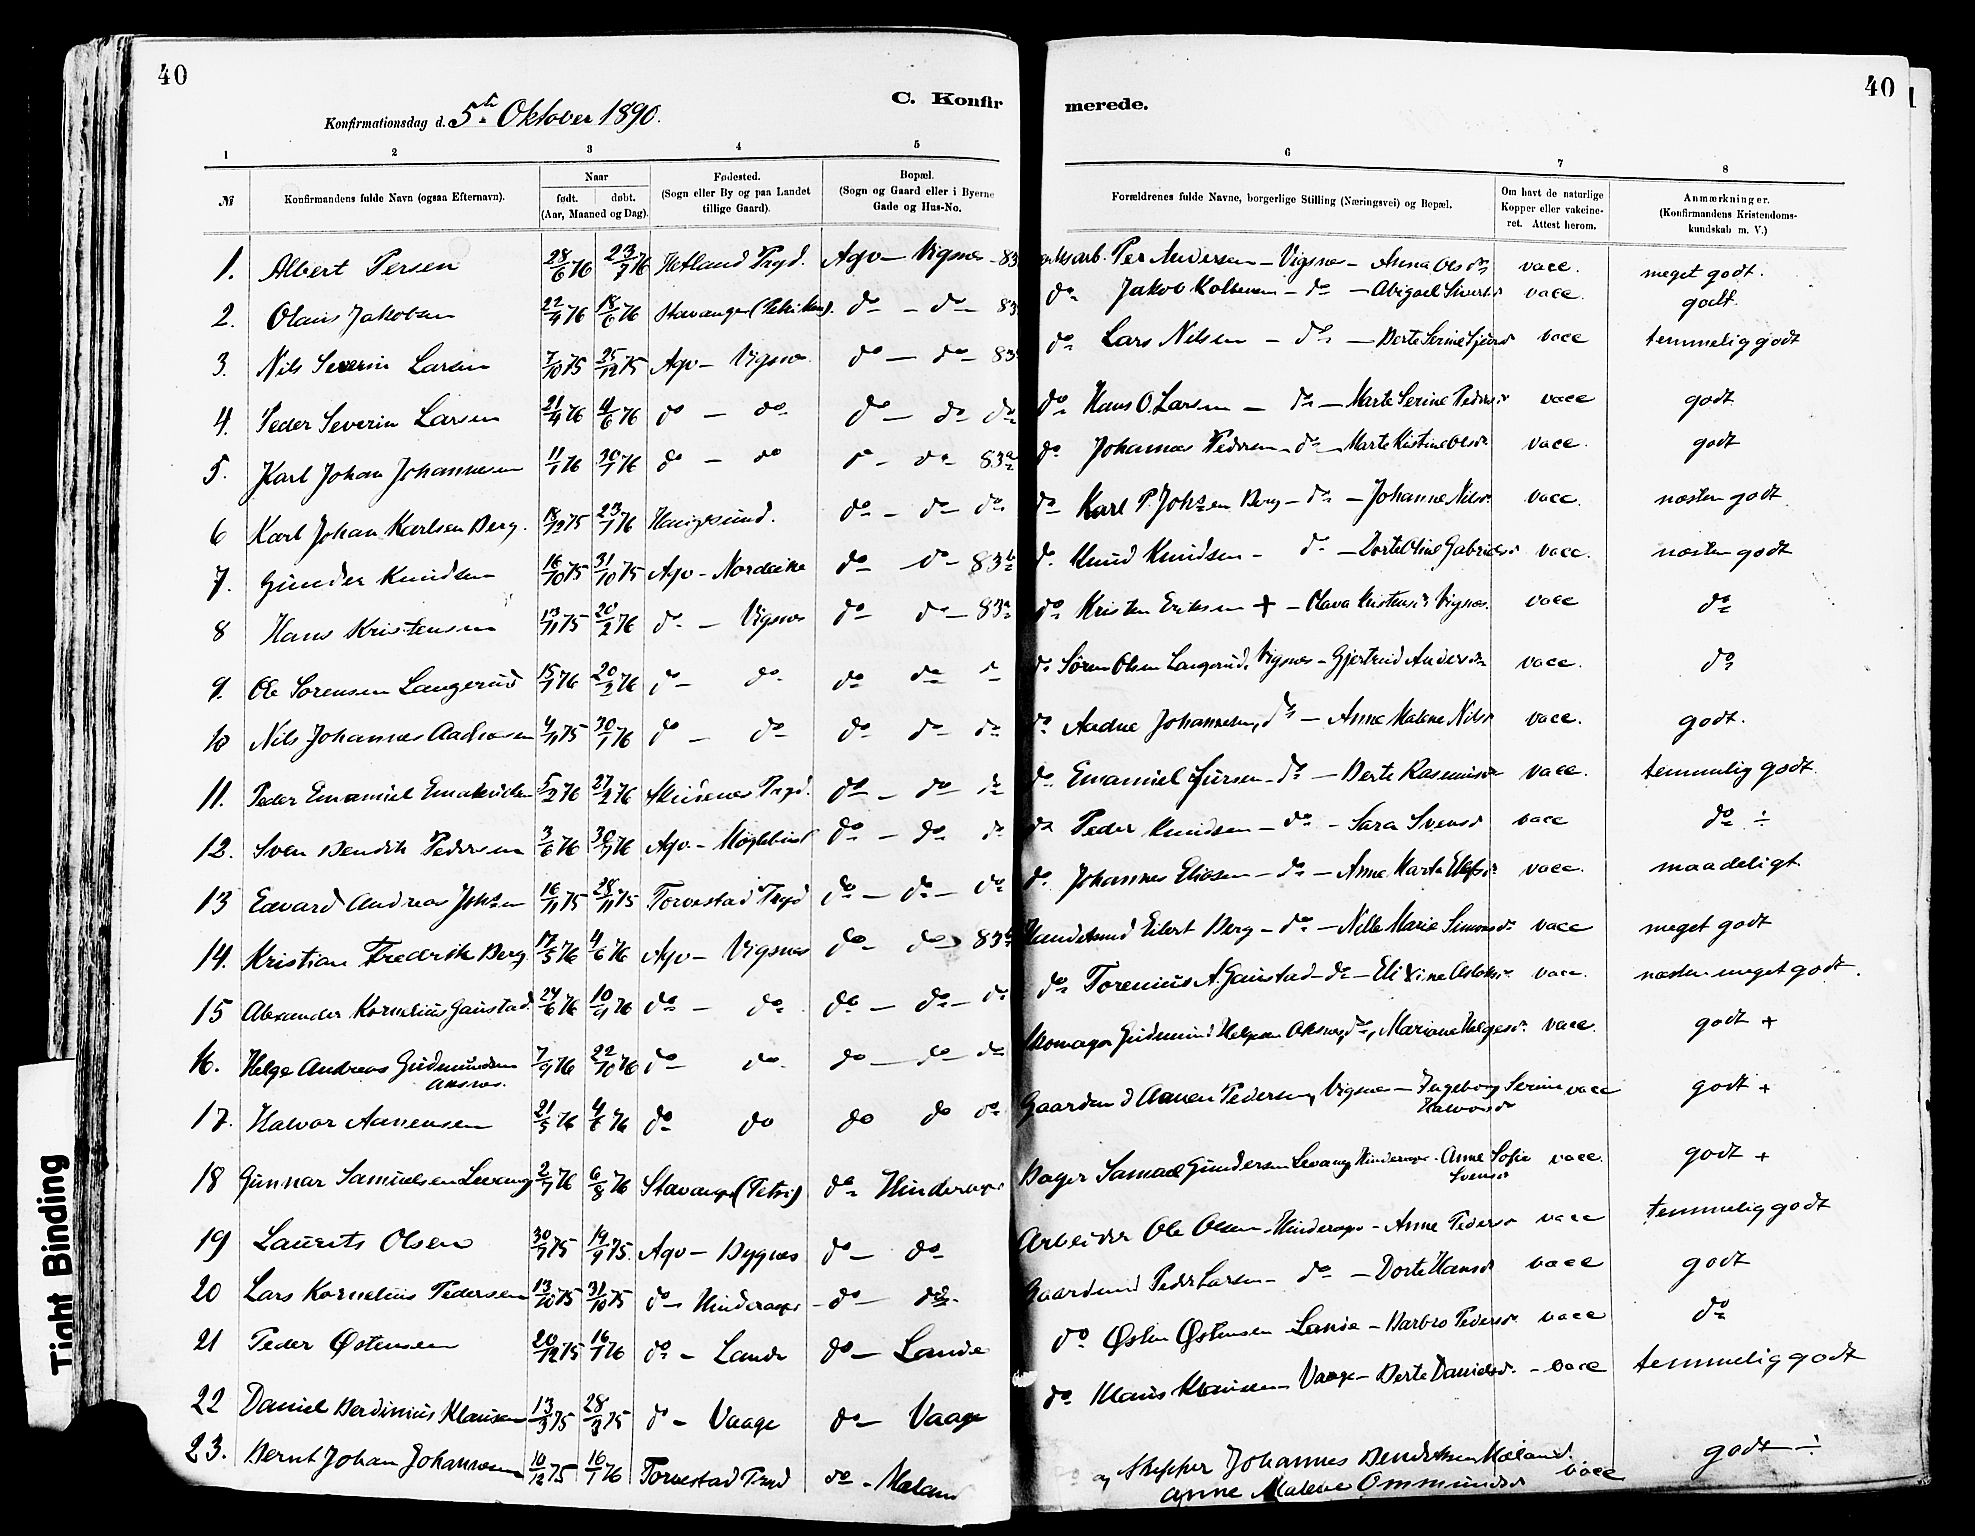 40
40
C. Konfir
merede.
Konfirmationsdag d. 5te Oktober 1890.
1 2 3 4 5 6 7 8
№ Konfirmandens fulde Navn (ogsaa Efternavn). Naar født. døbt. (Aar, Maaned og Dag). Fødested. (Sogn eller By og paa Landet tillige Gaard). Bopæl. (Sogn og Gaard eller i Byerne Gade og Hus-No. Forældrenes fulde Navne, borgerlige Stilling (Næringsvei) og Bopæl. Om havt de naturlige Kopper eller vakcineret. Attest herom. Anmærkninger. (Konfirmandens Kristendomskundskab m. V.)
1. Albert Persen 28/6 76 23/7 76 Hetland Prgd. Agv – Vigsnes – 83 Per Andersen – Vigsnes – Anna Olsdr vacc. meget godt.
2. Olaus Jakobsen 22/4 76 18/6 76 Stavanger do – do – 83 do Jakob – do – Abigael vacc. godt.
3. Nils Severin Larsen 7/10 75 25/12 75 Agv – Vigsnes do – do – 83 do Lars Nilsen – do – Berte Serine vacc temmelig godt
4. Peder Severin Larsen 21/4 76 4/6 76 do – do do – do do do Hans O. Larsen – do – Marte Serine Pedersdr vacc godt
5. Karl Johan Johannesen 11/1 76 30/1 76 do – do do – do – 83a do Johannes Pedersen – do – Marte Kistine Olsdr vacc. godt
6 Karl Johan Karlsen Berg. 18/12 75 23/1 76 Haugesund. do – do – do do Karl P. Johsen Berg – do – Johanne Nilsdr vacc. næsten godt
7. Gunder Knudsen 16/10 75 31/10 75 Agv – Nordvike do do – 83b do Knud Knudsen – do – Dorte Oline Gabrielsdr vacc. næsten godt
8 Hans Kristensen 13/11 75 20/2 76 do – Vigsnes do do – 83a do Kristen Eriksen + – Olava Kristensdr Vigsnes. vacc do
9. Ole Sørensen Langerud 15/1 76 20/2 76 do – do do do do do Søren Olsen Langerud, Vigsnes – Gjertrud Andersdr vacc. do
10 Nils Johannes Aadnesen 4/11 75 30/1 76 do – do do do do do Aadne Johannesen, do – Anne Malene Nilsdr vacc. godt.
11. Peder Emanuel Emanuelsen 5/2 76 27/2 76 Skudenes Prgd. do – do do do Emanuel – do – Berte Rasmusdr vacc. temmelig godt
12. Sven Bendik Pedersen 3/6 76 30/7 76 Agv. – do – do do do Peder Knudsen – do – Sara Svensdr vacc do ÷
13 Edvard Andreas Johsen 16/11 75 28/11 75 Torvestad Prgd do – do – do do Johannes Eliasen – do – Anne Marta vacc. maadeligt
14. Kristian Fredrik Berg 17/5 76 4/6 76 Agv – Vigsnes do – do 83b Eilert Berg – do – Nille Marie Simonsdr vacc meget godt
15 Alexander Kornelius Gaustad. 24/6 76 10/9 76 do – do do – do – do do Torenius A. Gaustad – do – Elixine Aslaksdr vacc. næsten meget godt.
16. Helge Andreas Gudmundsen Aksnes. 7/9 76 22/10 76 do – do do – do – do Skomager Gudmund Helgesen Aksnes, do, Mariane Helgesdr. vacc. godt +
17. Halvor Aanensen 21/5 76 4/6 76 do do do do do Gaardmd Aanen Pedersen, Vigsnes – Ingeborg Serine Halvorsdr vacc godt +
18 Gunnar Samuelsen Levang 2/7 76 6/8 76 Stavanger (Petri) do Hinderager Bager Samuel Gundersen Levang Hinderager – Anne Sofie Svensdr vacc. godt +
19 Laurits Olsen 30/7 75 19/9 75. Agv – Bygnes do – do Arbeider Ole Olsen – Hinderager – Anne Pedersdr vacc temmelig godt
20 Lars Kornelius Pedersen 13/10 75 31/10 75 do – Hinderager – do – do – Gaardmand Peder Larsen – do – Dorte Hansdr vacc godt
21 Peder Østensen 20/12 75 16/1 76 do – Lande do – Lande do Østen Østensen Lande – Barbro Pedersdr vacc do
22 Daniel Berdinius Klausen 13/3 75 28/3 75 do – Vaage do – Vaage do Klaus Klausen Vaage – Berte Danielsdr. – vacc temmelig godt
23. Bernt Johan Johannesen 10/12 75 16/1 76 Torvestad Prgd do – Mæland Skipper Johannes Bendiksen Mæland og Anne Malene Ommundsdr vacc godt ÷
Tight Binding